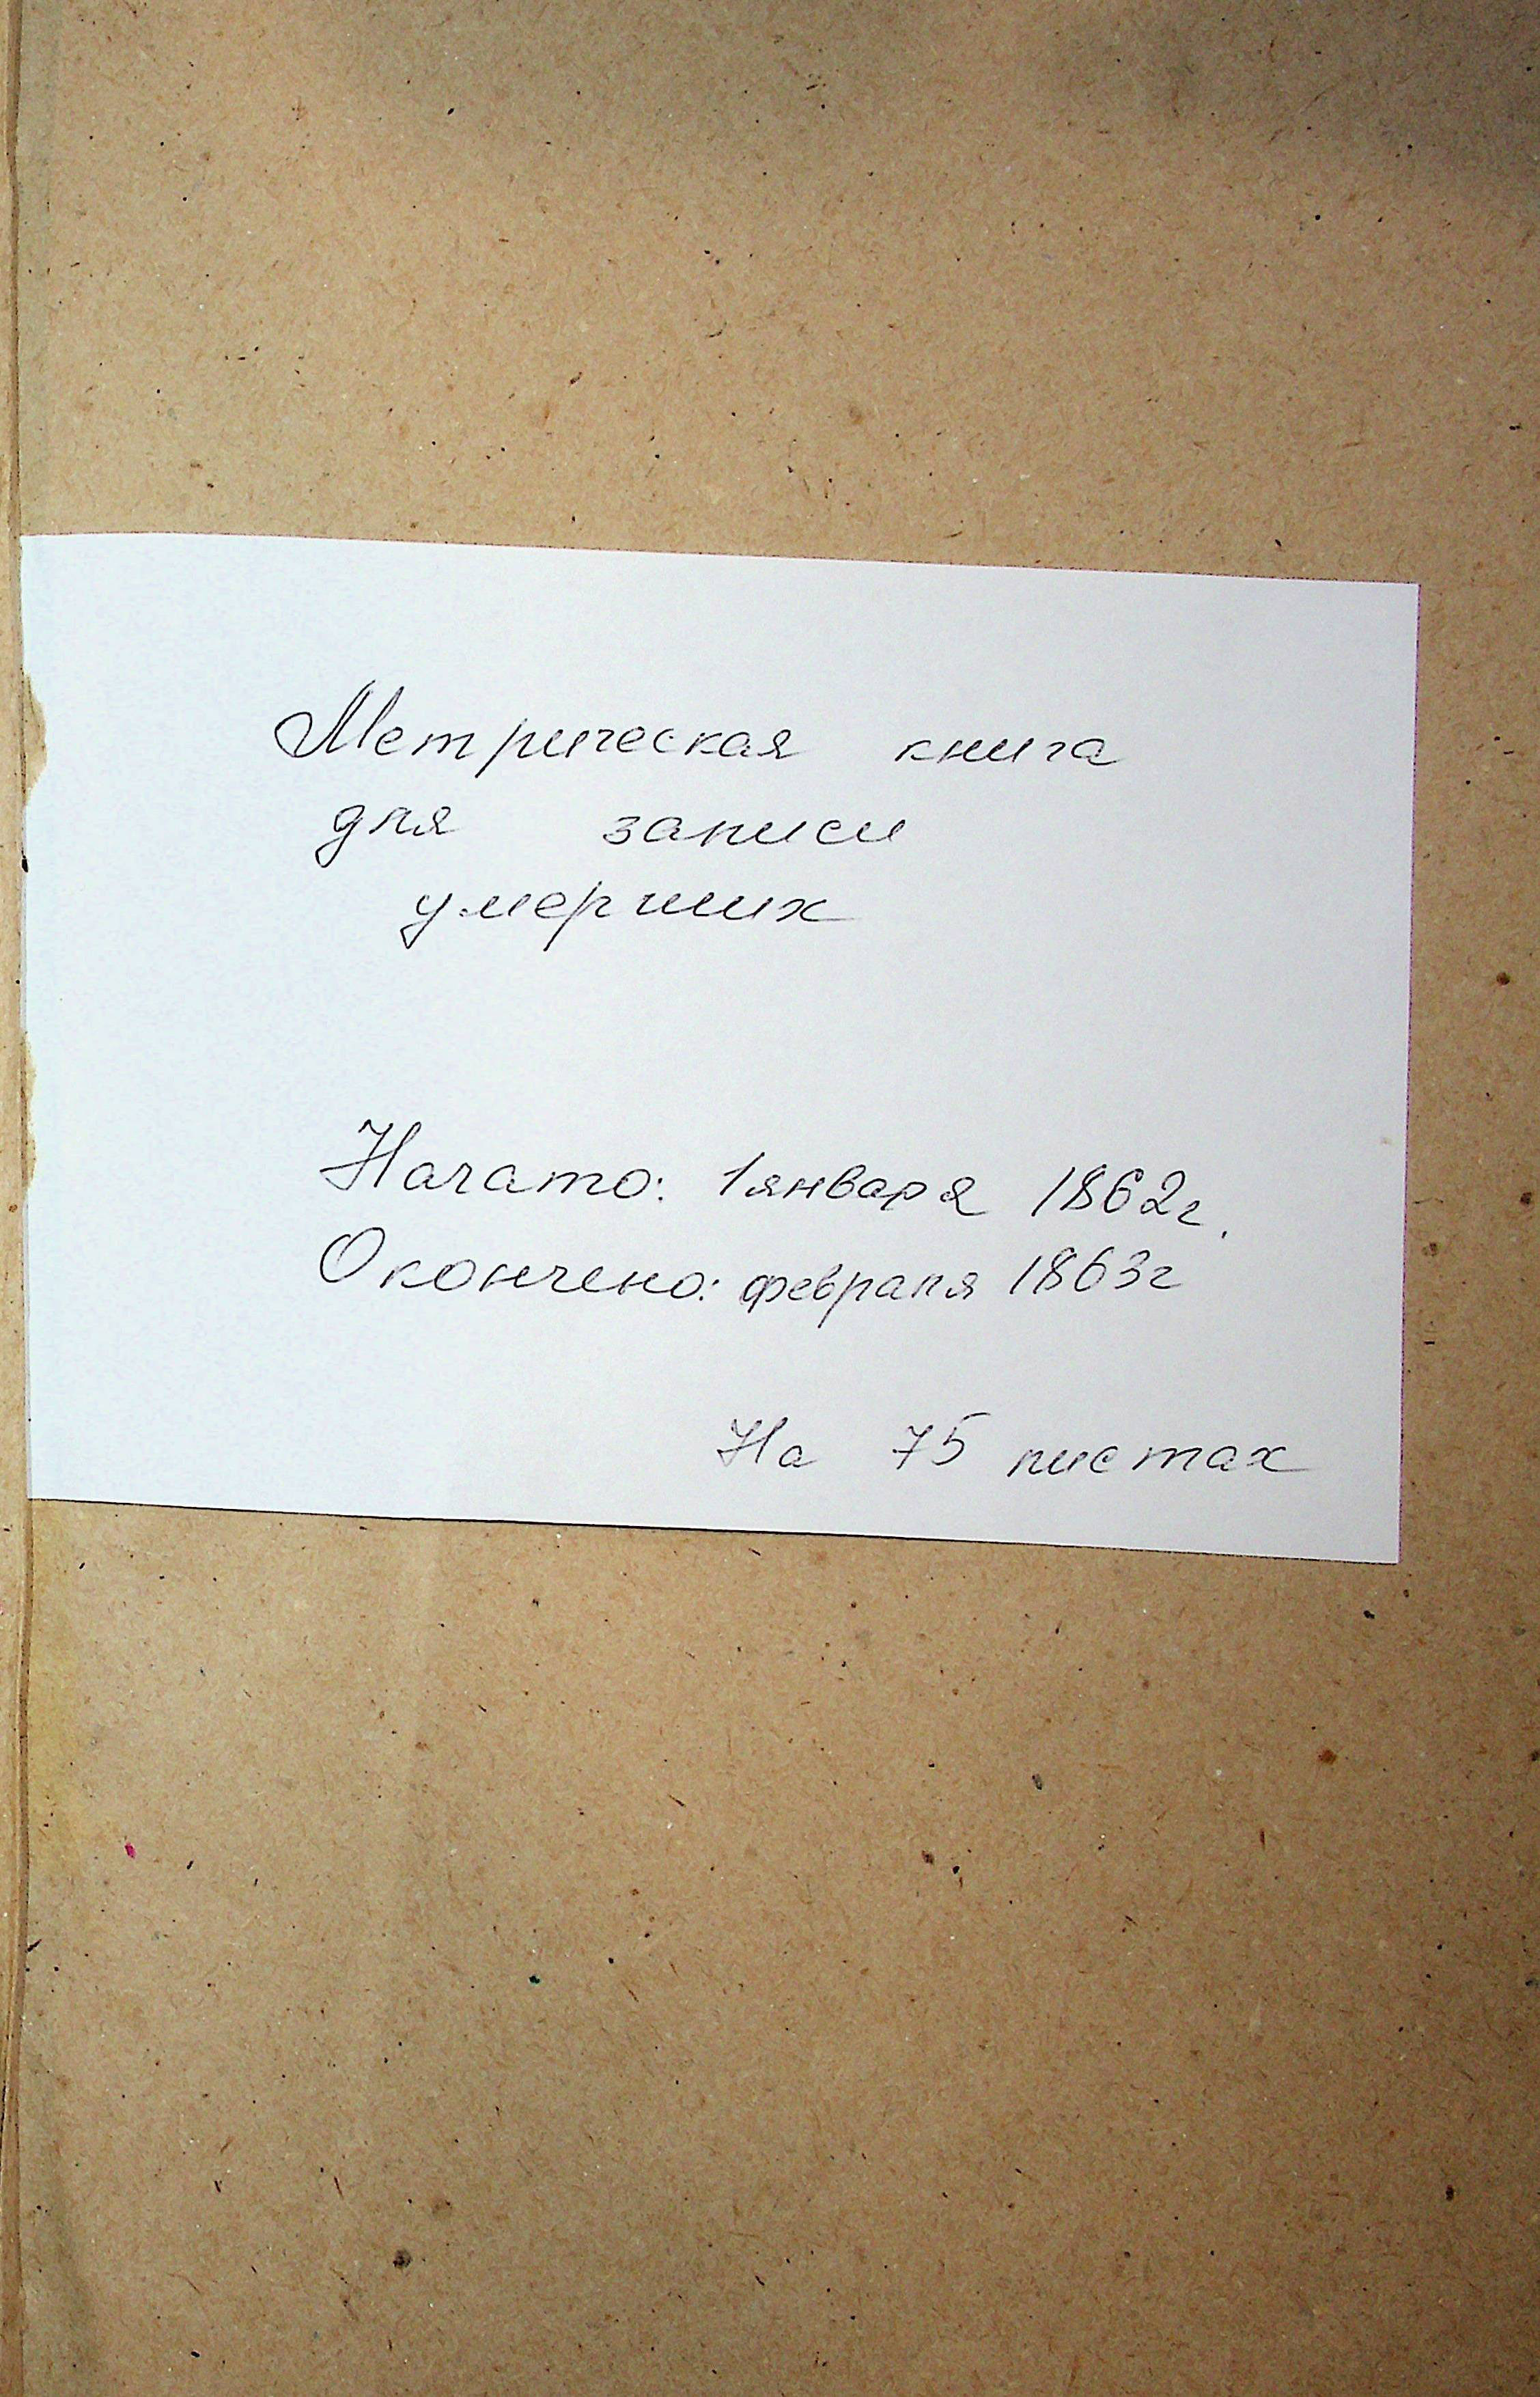 Метрическая книга
для записи
умерших
Начато: 1 января 1862г.
Окончено: февраля 1863г
На 75 листах